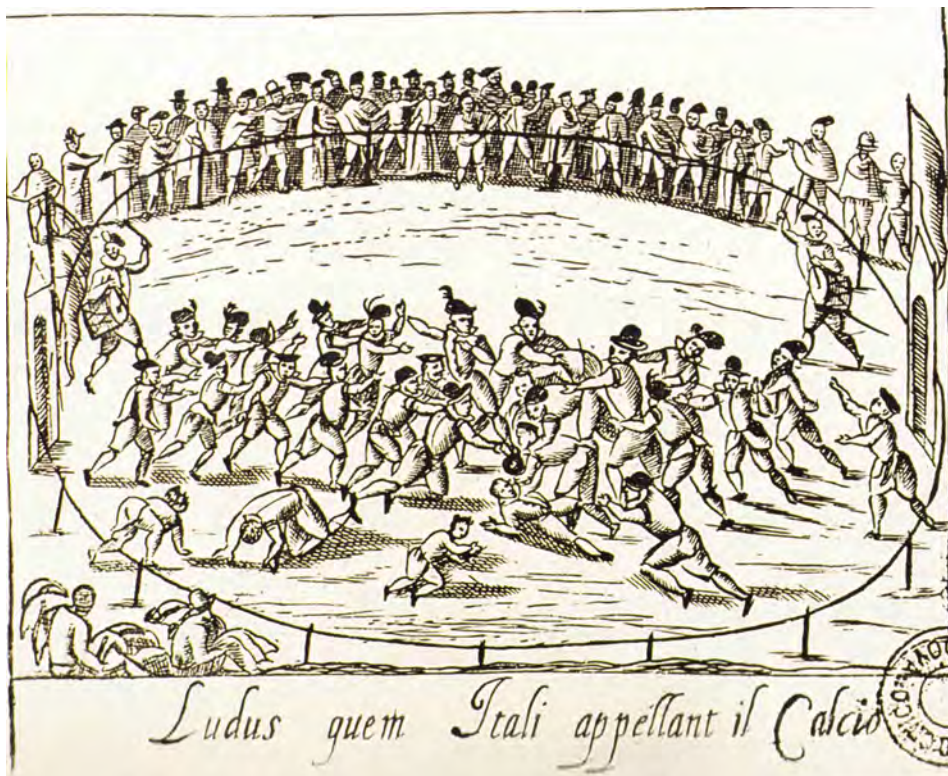 Ludus quem Itali appellant il Calcio